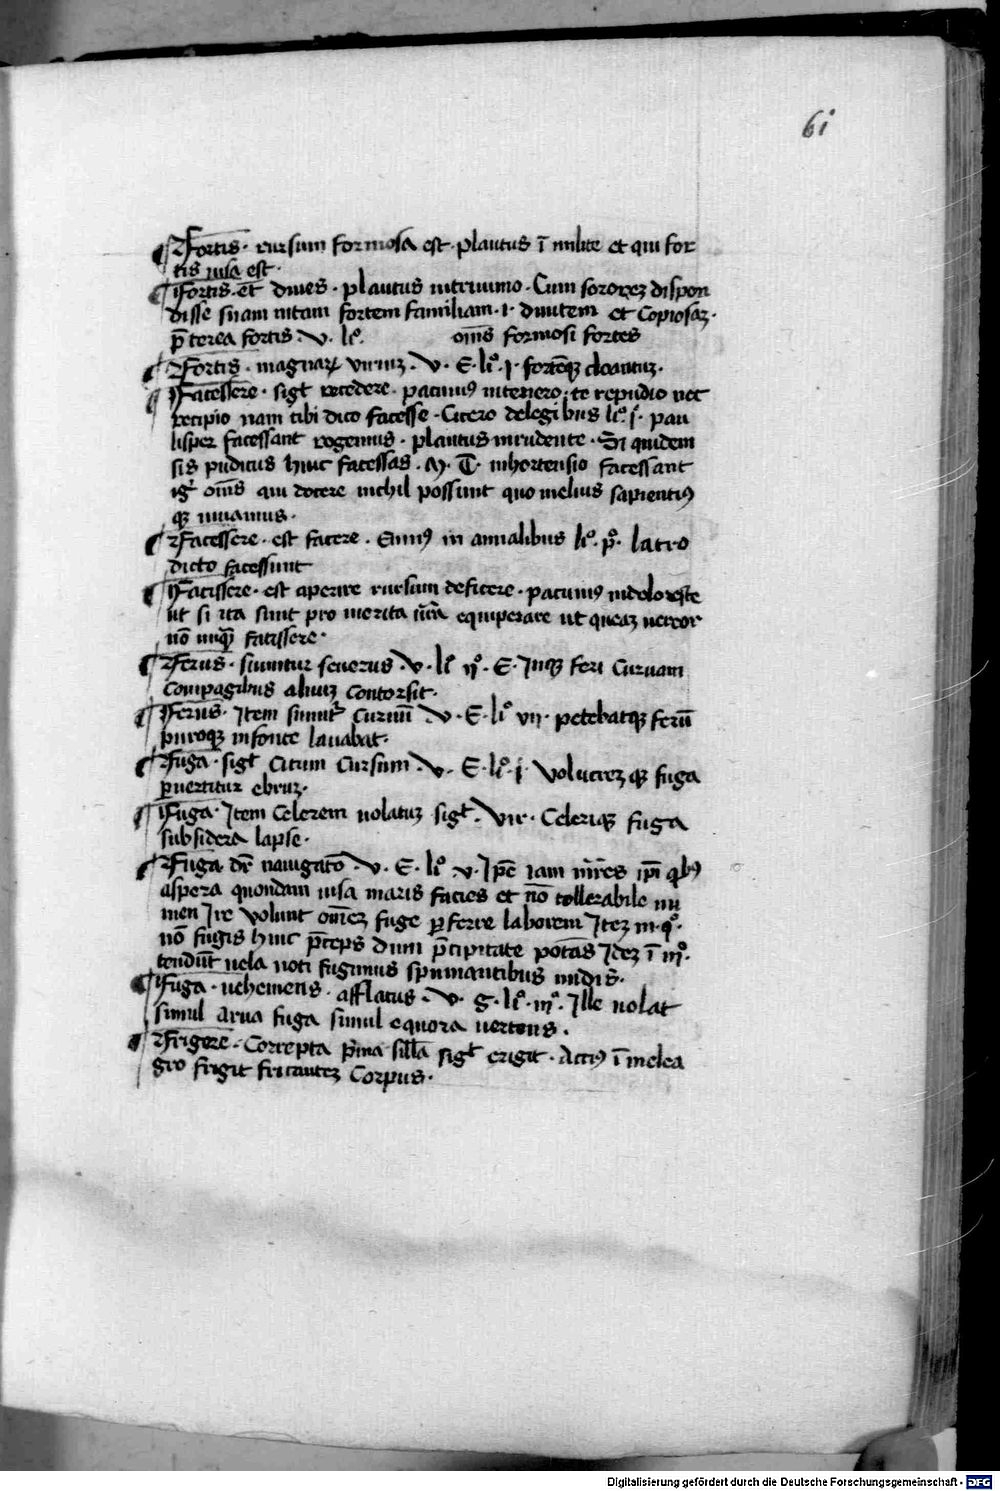 61
Fortis · rursum formosa est · plautus ī milite et qui for
tis uisa est ·
Fortis · et diues · plautus intriuumo · Cum sororeꝫ dispon
disse suam intam fortem familiam · i · diuitem et Copiosaꝫ ·
p̄terea fortis · v · liº · om̄s formosi fortes
Fortis · magnaꝝ viriuꝫ · v · E · liº · i · fortēqꝫ cloantuꝫ ·
Facessere · sigt̄ recedere · pacuuiꝰ interiero · te repudio nec
recipio nam tibi dico facesse · Cicero delegibus liº · i · pau
lisper facessant rogemus · plautus inrudente · Si quidem
sis pudicus hinc facessas · M · T · inhortensio facessant
igr̄ om̄s qui docere nichil possunt quo melius sapientiꝰ
qꝫ uiuamus ·
Facessere · est facere · Enniꝰ in annalibus liº · pº · latro
dicto facessunt
Fatissere · est aperire rursum deficere · pacuuiꝰ indoloreste
ut si ita sunt pro merita ūra equiperare ut queaꝫ uereor
nō nūqꝫ fatissere ·
Ferus · siumitur seuerus · v · liº iiº · E · Inqꝫ feri Curuam
Compagibus aluuꝫ contorsit ·
Ferus · Item sumit̄ Curuū · v · E · liº vii · petebatqꝫ ferū
puroqꝫ infonte lauabat ·
Fuga · sigt̄ Citum Cursum · v · E · liº · i · Volucreꝫ qꝫ fuga
p̱uertitur ebruꝫ ·
Fuga · Item Celerem uolatuꝫ sigt̄ · Vir · Celeriqꝫ fuga
subsidera lapse ·
Fuga dr̄ nauigatō · v · E · liº · v · Ip̄e iam mr̄es ip̄i qbꝰ
aspera quondam uisa maris facies et nō tollerabile nu
men Ire volunt om̄eꝫ fuge p̱ferre laborem Iteꝫ in · qº ·
nō fugis hinc p̄ceps dum p̄cipitate potās Ideꝫ ī iiiº ·
tendūt uela noti fugimus spumantibus undis ·
Fuga · uehemens · afflatus · v · g · liº · iiiº · Ille uolat
simul Arua fuga simul equora uertens ·
Frigere · Correpta p̄ma sill̄a sigt̄ erigit · Actiꝰ ī melea
gro frigit fricanteꝫ Corpus ·
Digitalisierung gefördert durch die Deutsche Forschungsgemeinschaft - DFG